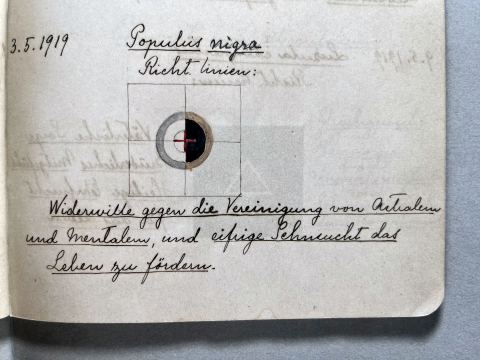 3.5.1919
Populus nigra
Richtlinien:
Widerwille gegen die Vereinigung von Astralem
und Mentalem, und eifrige Sehnsucht das
Leben zu fördern.